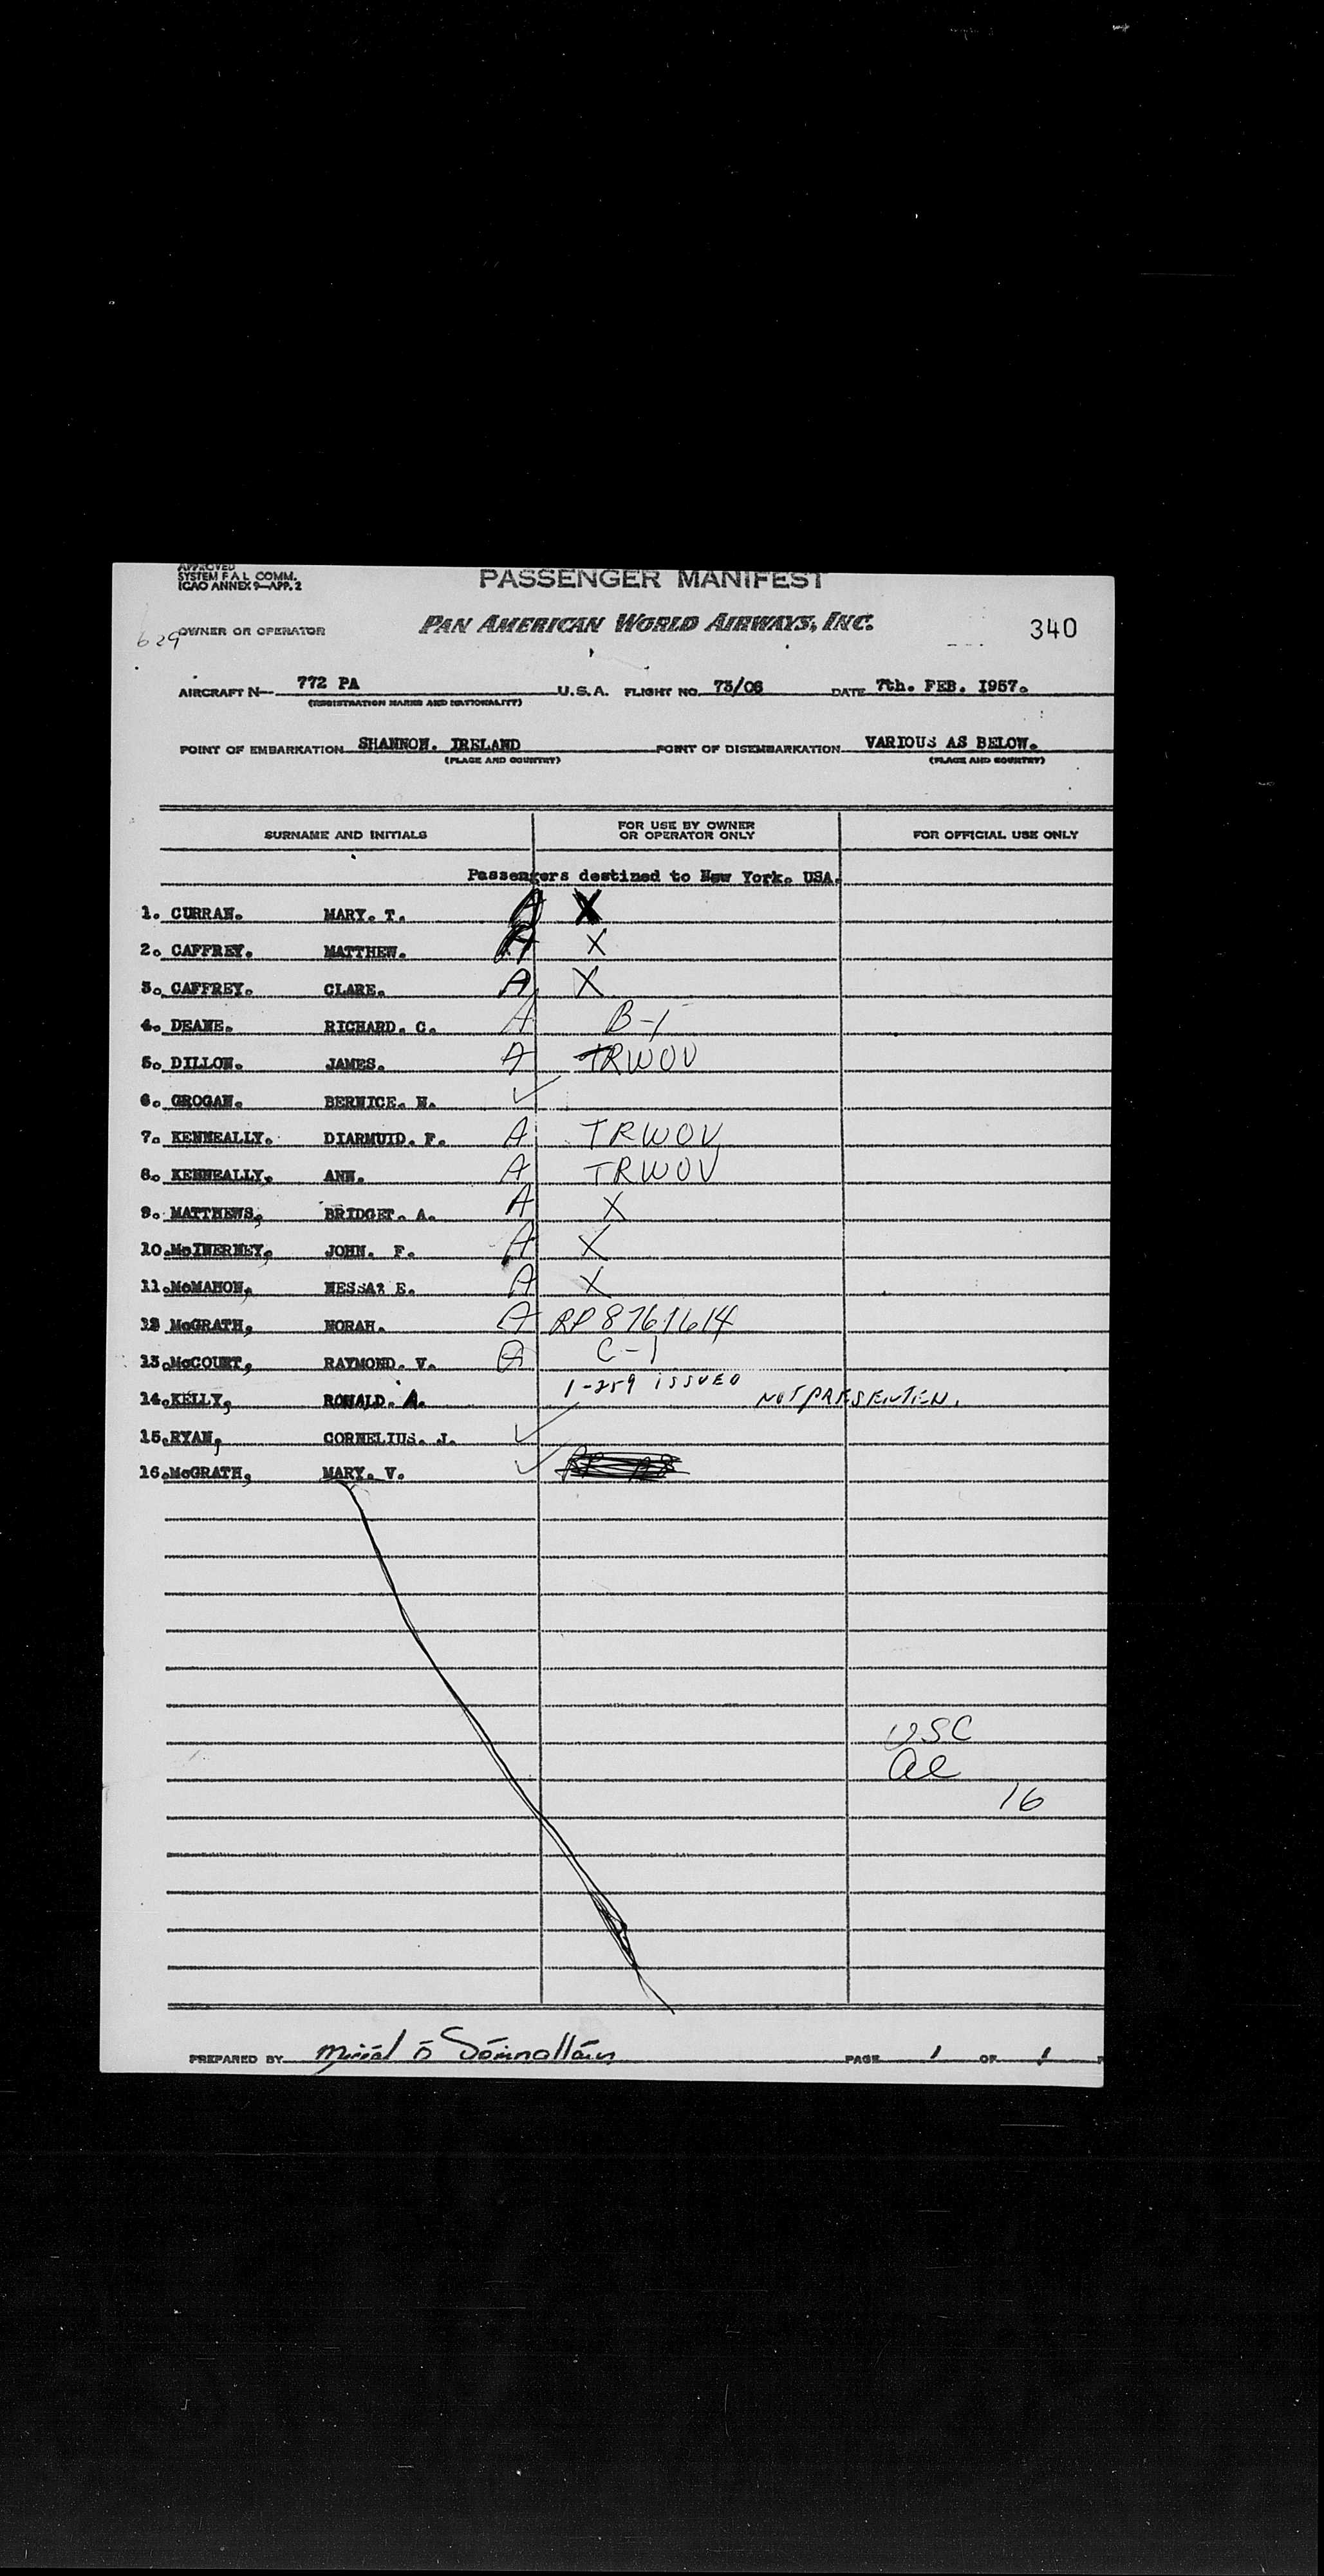 APPROVED
SYSTEM F A L COMM.
ICAO ANNEX 9—APP. 2
PASSENGER MANIFEST
629
OWNER OR OPERATOR PAN AMERICAN WORLD AIRWAYS, INC. 340
AIRCRAFT N— 772 PA U.S.A. FLIGHT NO. 73/06 DATE 7th. FEB. 1957.
(REGISTRATION MARKS AND NATIONALITY)
POINT OF EMBARKATION SHANNON. IRELAND POINT OF DISEMBARKATION VARIOUS AS BELOW.
(PLACE AND COUNTRY) (PLACE AND COUNTRY)
SURNAME AND INITIALS FOR USE BY OWNER OR OPERATOR ONLY FOR OFFICIAL USE ONLY
Passengers destined to New York. USA.
1. CURRAN. MARY. T. A X
2. CAFFREY. MATTHEW. A X
3. CAFFREY. CLARE. A X
4. DEANE. RICHARD. C. A B-1
5. DILLON. JAMES. A TRWOV
6. GROGAN. BERNICE. N. ✓
7. KENNEALLY. DIARMUID. F. A TRWOV
8. KENNEALLY, ANN. A TRWOV
9. MATTHEWS, BRIDGET. A. A X
10. McINERNEY, JOHN. F. A X
11. McMAHON, NESSA: E. A X
12 McGRATH, NORAH. A RP 8761614
13. McCOURT, RAYMOND. V. A C-1
14. KELLY, RONALD. A. 1-259 ISSUED NOT PRESENTED.
15. RYAN, CORNELIUS. J. ✓
16. McGRATH, MARY. V. ✓
USC
al
16
PREPARED BY Ó Dómnalláin PAGE 1 OF 1